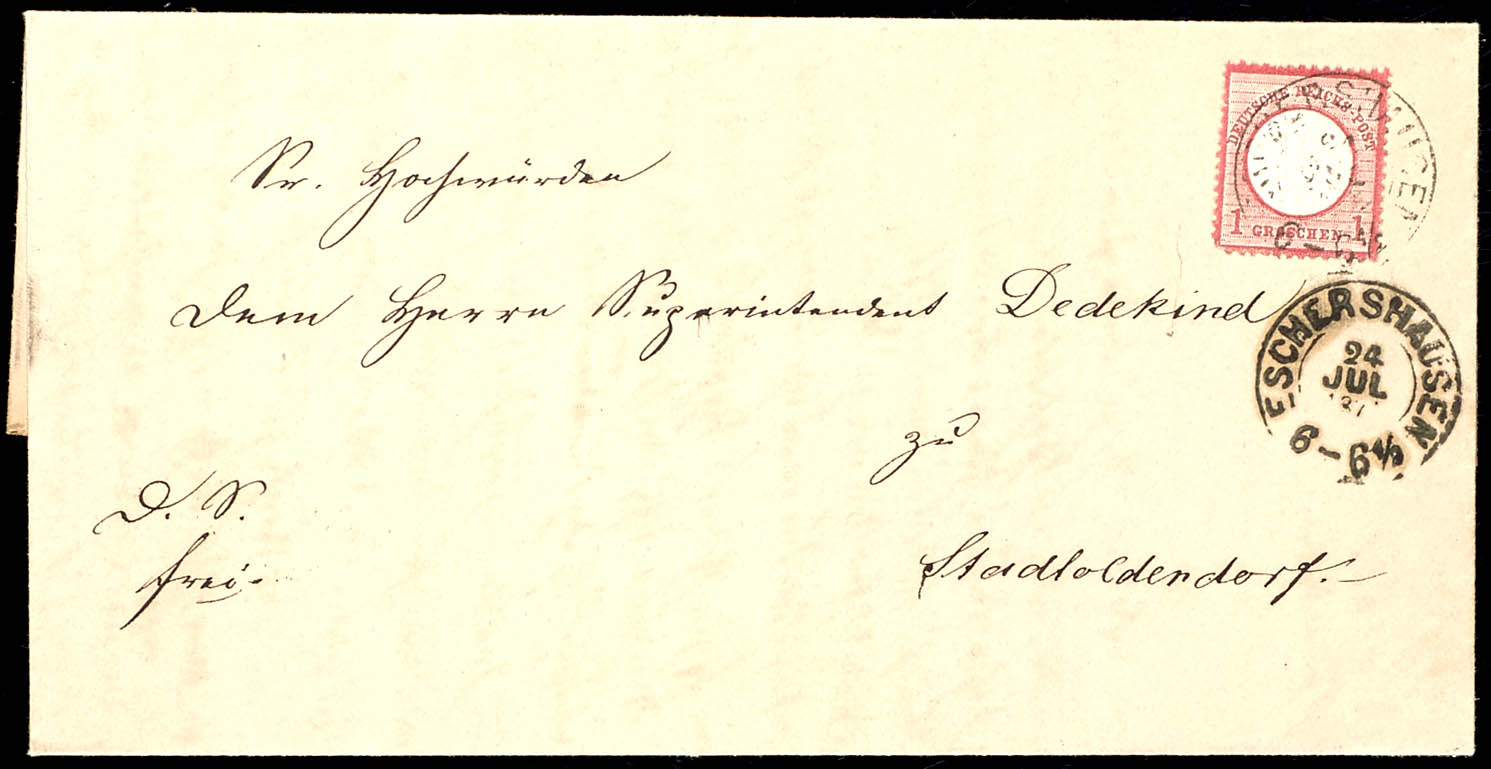 DEUTSCHE REICHS-POST
1 GROSCHEN 1
Sr. Hochwürden
dem Herrn Superintendent Dedekind
ESCHERSHAUSEN
24
JUL
6-6½
zu
D. S.
frei.
Stadtoldendorf.